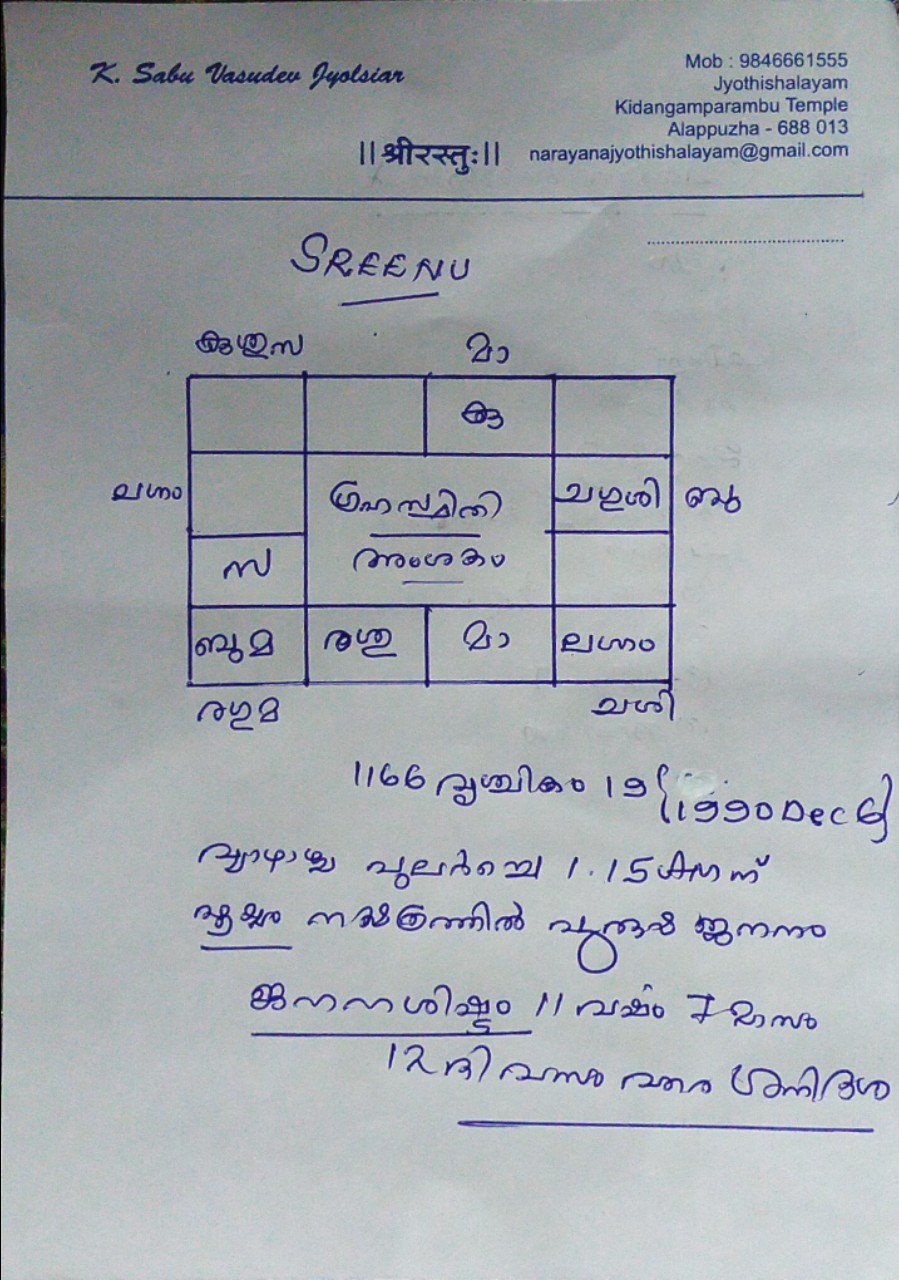 K. Sabu Vasudev Jyolsiar
Mob : 9846661555
Jyothishalayam
Kidangamparambu Temple
Alappuzha - 688 013
narayanajyothishalayam@gmail.com
||श्रीरस्तुः||
SREENU
കുശുസ മാ
കു
ലഗ്നം ഗ്രഹസ്ഥിതി ചഗുശി ബു
സ അംശകം
ബുമ രശു മാ ലഗ്നം
രഗുമ ചശി
1166 വൃശ്ചികം 19 {1990 Dec 6}
വ്യാഴാഴ്ച പുലർച്ചെ 1.15 ന്
പൂയം നക്ഷത്രത്തിൽ പുരുഷ ജനനം
ജനനശിഷ്ടം 11 വർഷം 7 മാസം
12 ദിവസം വരെ ശനിദശ